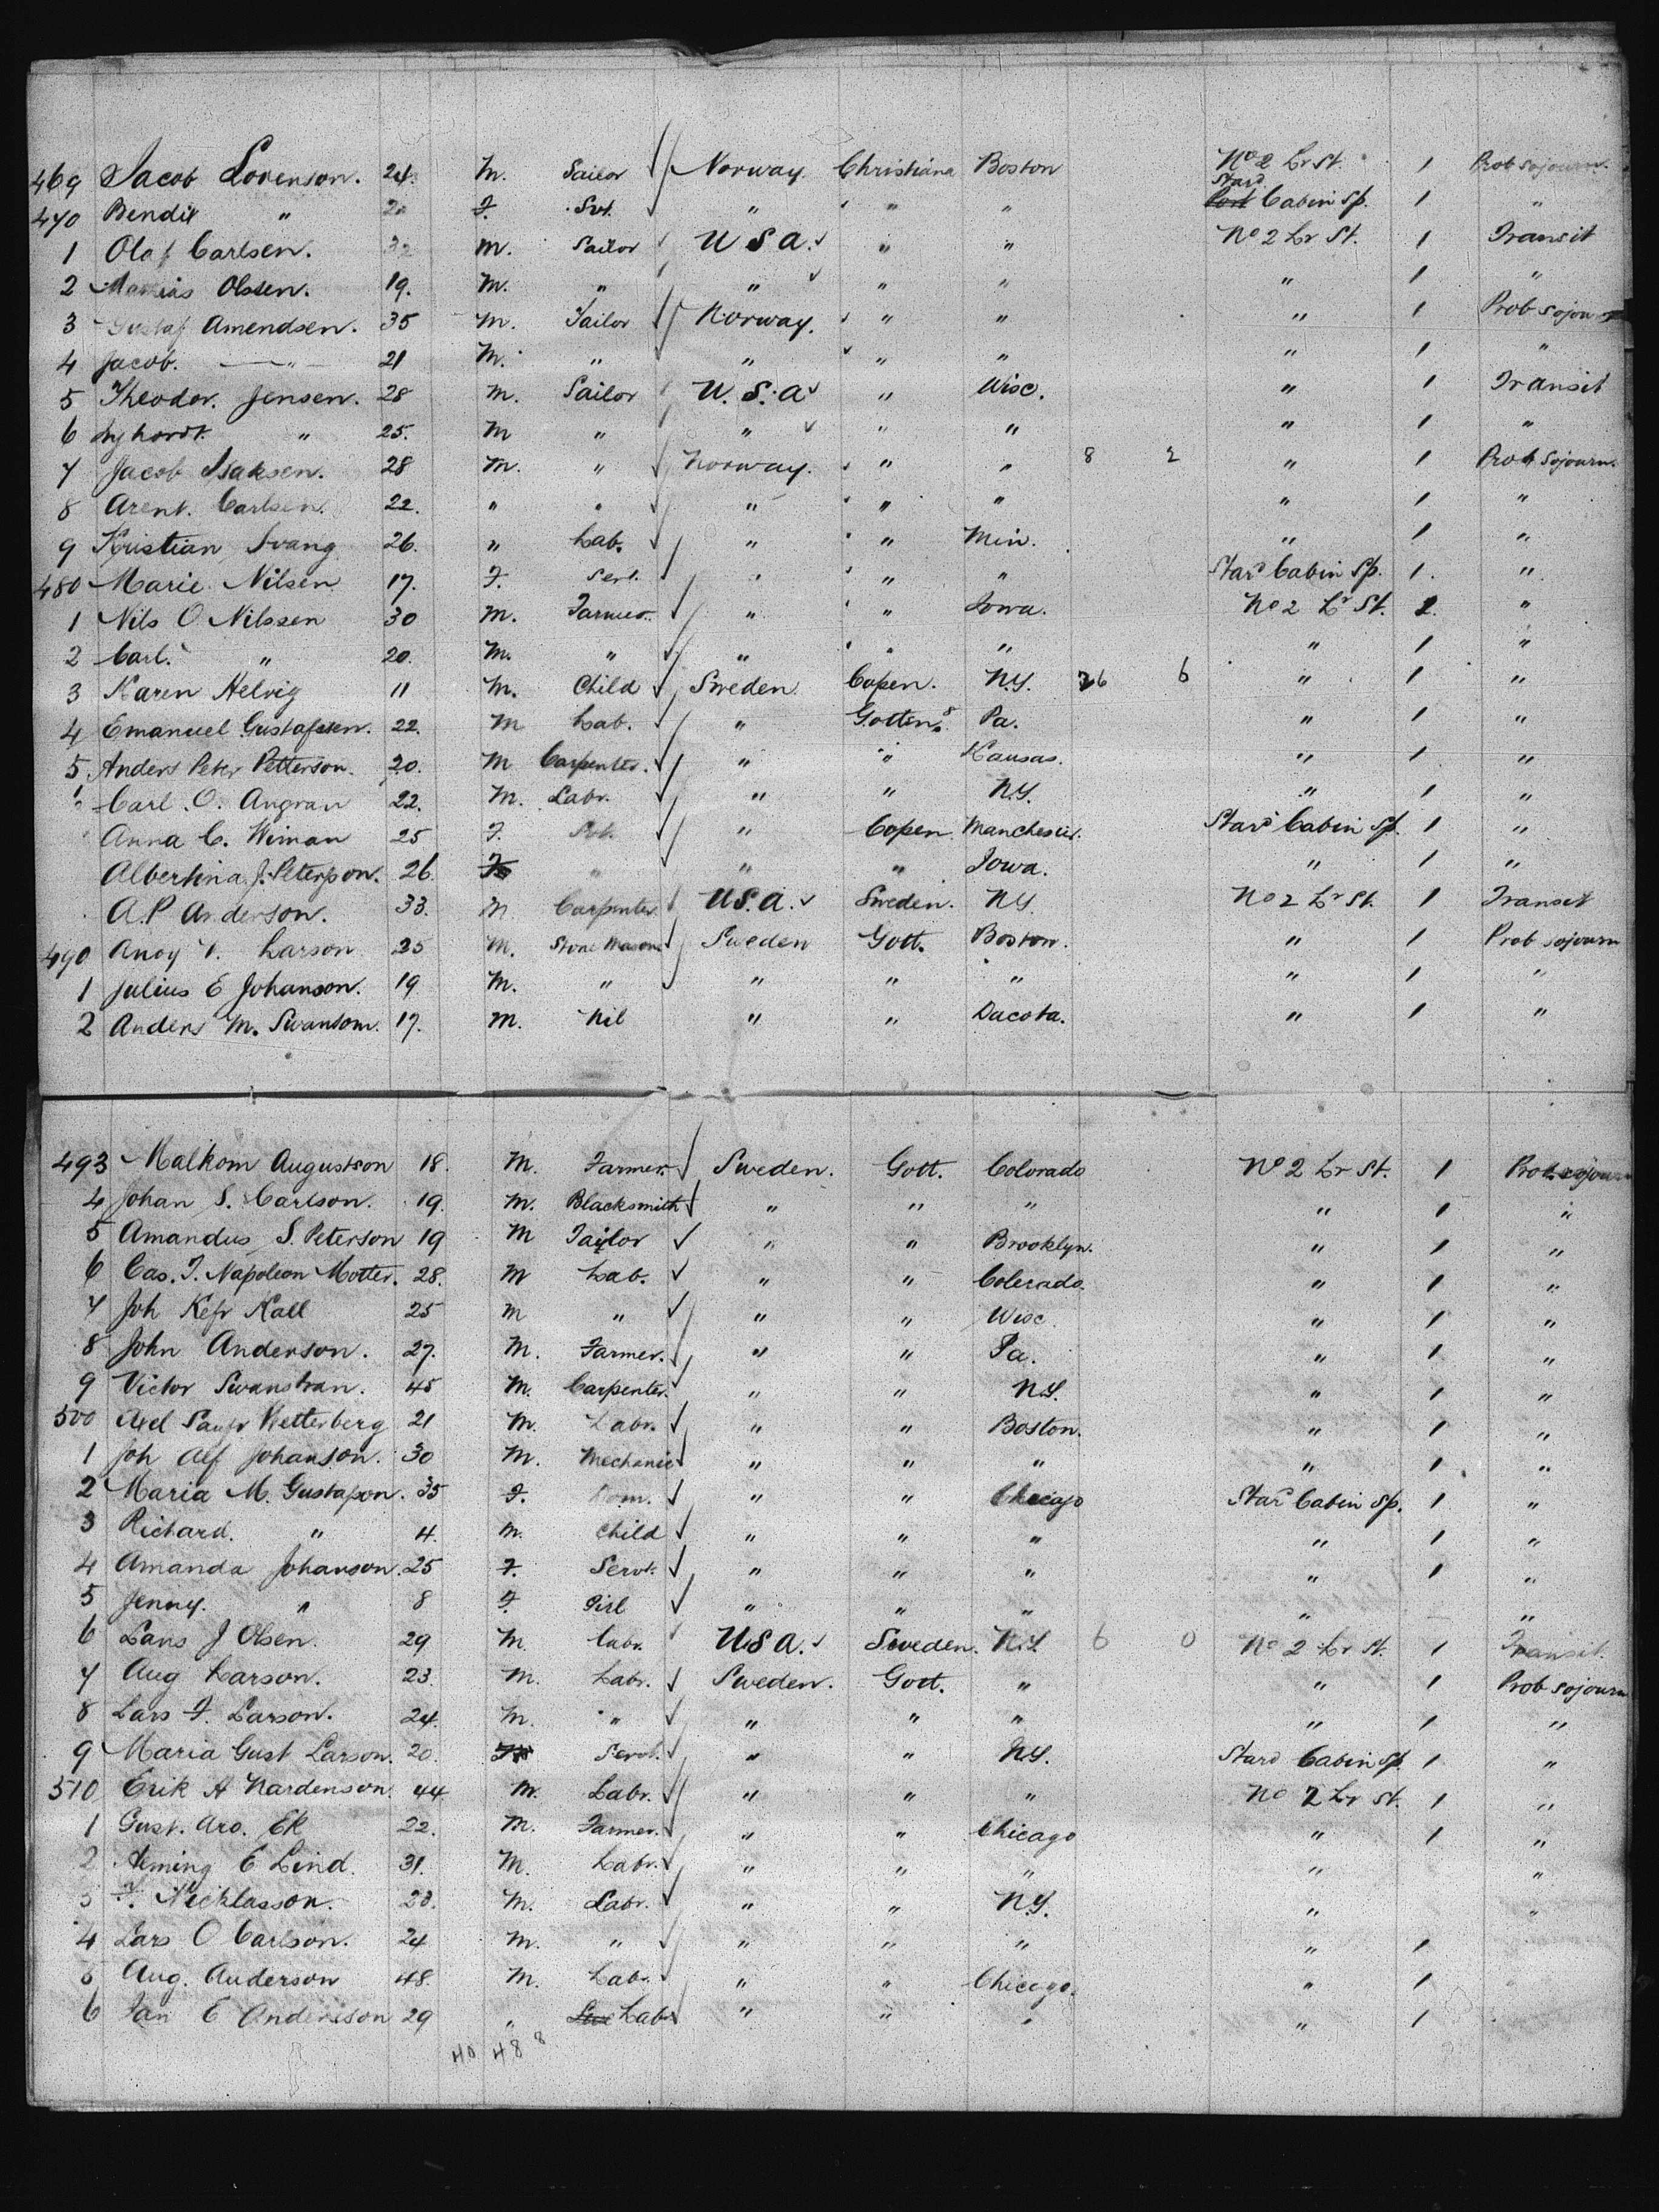 469 Jacob Lorenson. 24. M. Sailor Norway Christiana Boston No 2 Lr St. 1 Prob sojourn.
470 Bendit " F. Svt. " " " Stard Port Cabin Sp. 1 "
1 Olaf Carlsen. 32 M. Sailor U S A. " " No 2 Lr St. 1 Transit
2 Olsen. 19. M. " " " " " 1 "
3 Gustaf Amendsen. 35 M. Tailor Norway. " " " 1 Prob sojourn
4 Jacob. " 21 M. " " " " " 1 "
5 Theodor. Jensen. 28 M. Sailor U. S. A " Wisc. " 1 Transit
6 " 25. M " " " " " 1 "
7 Jacob Isaksen. 28 M. " Norway. " " 8 2 " 1 Prob sojourn.
8 Arent. Carlsen. 22. " " " " " " 1 "
9 Kristian Svang 26. " Lab. " " Min. " 1 "
480 Marie Nilsen 17. F. Servt. " " " Stard Cabin Sp. 1. "
1 Nils O Nilssen 30 M. Farmer. " " Iowa. No 2 Lr St. 2. "
2 Carl. " 20. M. " " " " " 1 "
3 Karen Helvig 11 M. Child Sweden Copen. N.Y. 26 6 " 1 "
4 Emanuel Gustafssen. 22. M Lab. " Gotten. Pa. " 1 "
5 Anders Peter Petterson. 20. M Carpenter. " " Kansas. " 1 "
6 Carl. O. Angran 22. M. Labr. " " N.Y. " 1 "
Anna C. Wiman 25 F. " Copen. Manchester. Stard Cabin Sp. 1 "
Albertina J. Peterson. 26. F " " " Iowa. " 1 "
A. P Anderson. 33. M Carpenter U S. A. Sweden. N.Y. No 2 Lr St. 1 Transit
490 Larson 25 M. Stone Mason Sweden Gott. Boston. " 1 Prob sojourn
1 Julius E Johanson. 19 M. " " " " " 1 "
2 Anders M. Swansom. 17. M. Nil " " Dacota. " 1 "
493 Malkom Augustson 18. M. Farmer. Sweden. Gott. Colorado No 2 Lr St. 1 Prob. sojourn
4 Johan S. Carlson. 19. M. Blacksmith " " " " 1 "
5 Amandus S. Peterson 19 M Tailor " " Brooklyn. " 1 "
6 Cas. T. Napoleon Motter. 28. M Lab. " " Colerado. " 1 "
7 Joh Kefr Kall 25 M " " " Wisc. " 1 "
8 John Anderson. 27. M. Farmer. " " Pa. " 1 "
9 Victor Swanstran. 45 M. Carpenter. " " N.Y. " 1 "
500 Axel Ketterberg 21 M. Labr. " " Boston. " 1 "
1 Joh Alf Johanson. 30 M. Mechanic " " " " 1 "
2 Maria M. Gustafson. 35 F. Dom. " " Chicago Stard Cabin Sp. 1 "
3 Richard. " 4. M. Child " " " " 1 "
4 Amanda Johanson. 25 F. Servt. " " " " 1 "
5 Jenny. " 8 F. Girl " " " " "
6 Lars J Olsen. 29 M. Labr. U S A. Sweden. N.Y. 6 0 No 2 Lr St. 1 Transit.
7 Aug Larson. 23. M. Labr. Sweden. Gott. " " 1 Prob sojourn
8 Lars F. Larson. 24. M. " " " " " 1 "
9 Maria Gust Larson. 20. Servt. " " N.Y. Stard Cabin Sp. 1 "
510 Erik A Nardenson. 44 M. Labr. " " " No 2 Lr St. 1 "
1 Gust. Aro. Ek 22. M. Farmer. " " Chicago " 1 "
2 Heming E Lind. 31. M. Labr. " " " " "
3 F. Nicklasson. 28. M. Labr. " " N.Y. " "
4 Lars O Carlson. 24 M. " " " " " 1
5 Aug. Anderson 48. M. Lab. " " Chicago. " 1
6 Jan E Andersson 29 " Lab " " " " 1
40 48 8